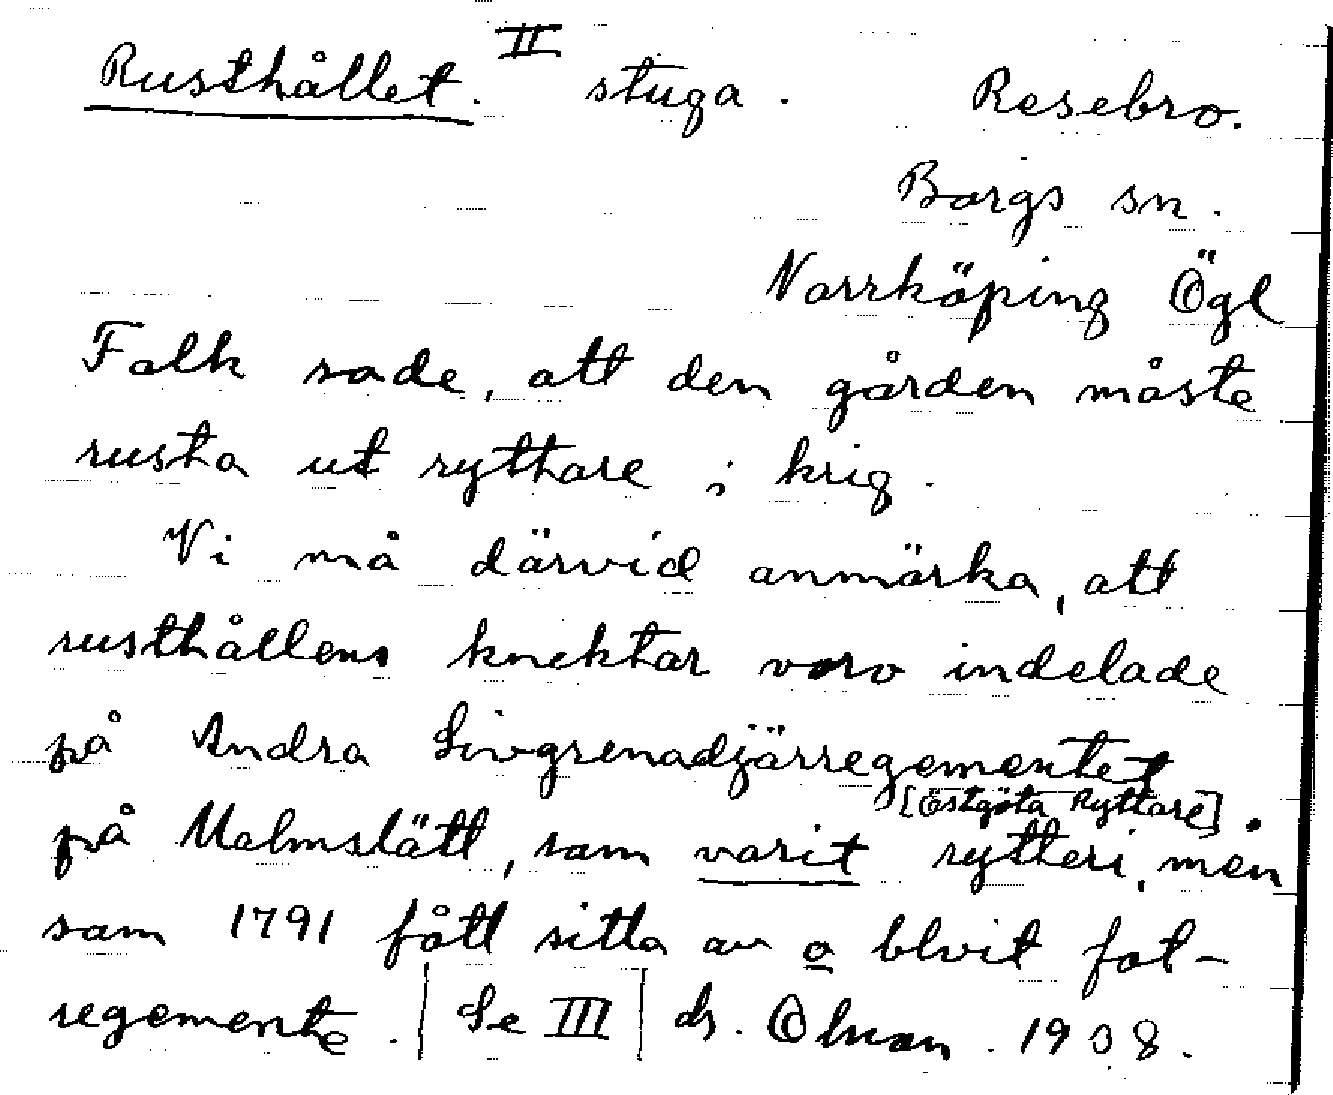 Rusthållet. II stuga. Resebro.
Borgs sn.
Norrköping Ögl
Folk sade, att den gården måste
rusta ut ryttare i krig.
Vi må därvid anmärka, att
rusthållens knektar voro indelade
på Andra Livgrenadjärregementet
[Östgöta Ryttare].
på Malmslätt, som varit rytteri, men
som 1791 fått sitta av o blvit fot-
regemente. | Se III | ds. Öhman. 1938.